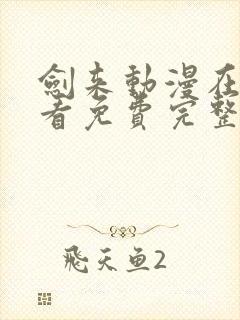 劍来動漫在
看免費完整
飛天鱼2